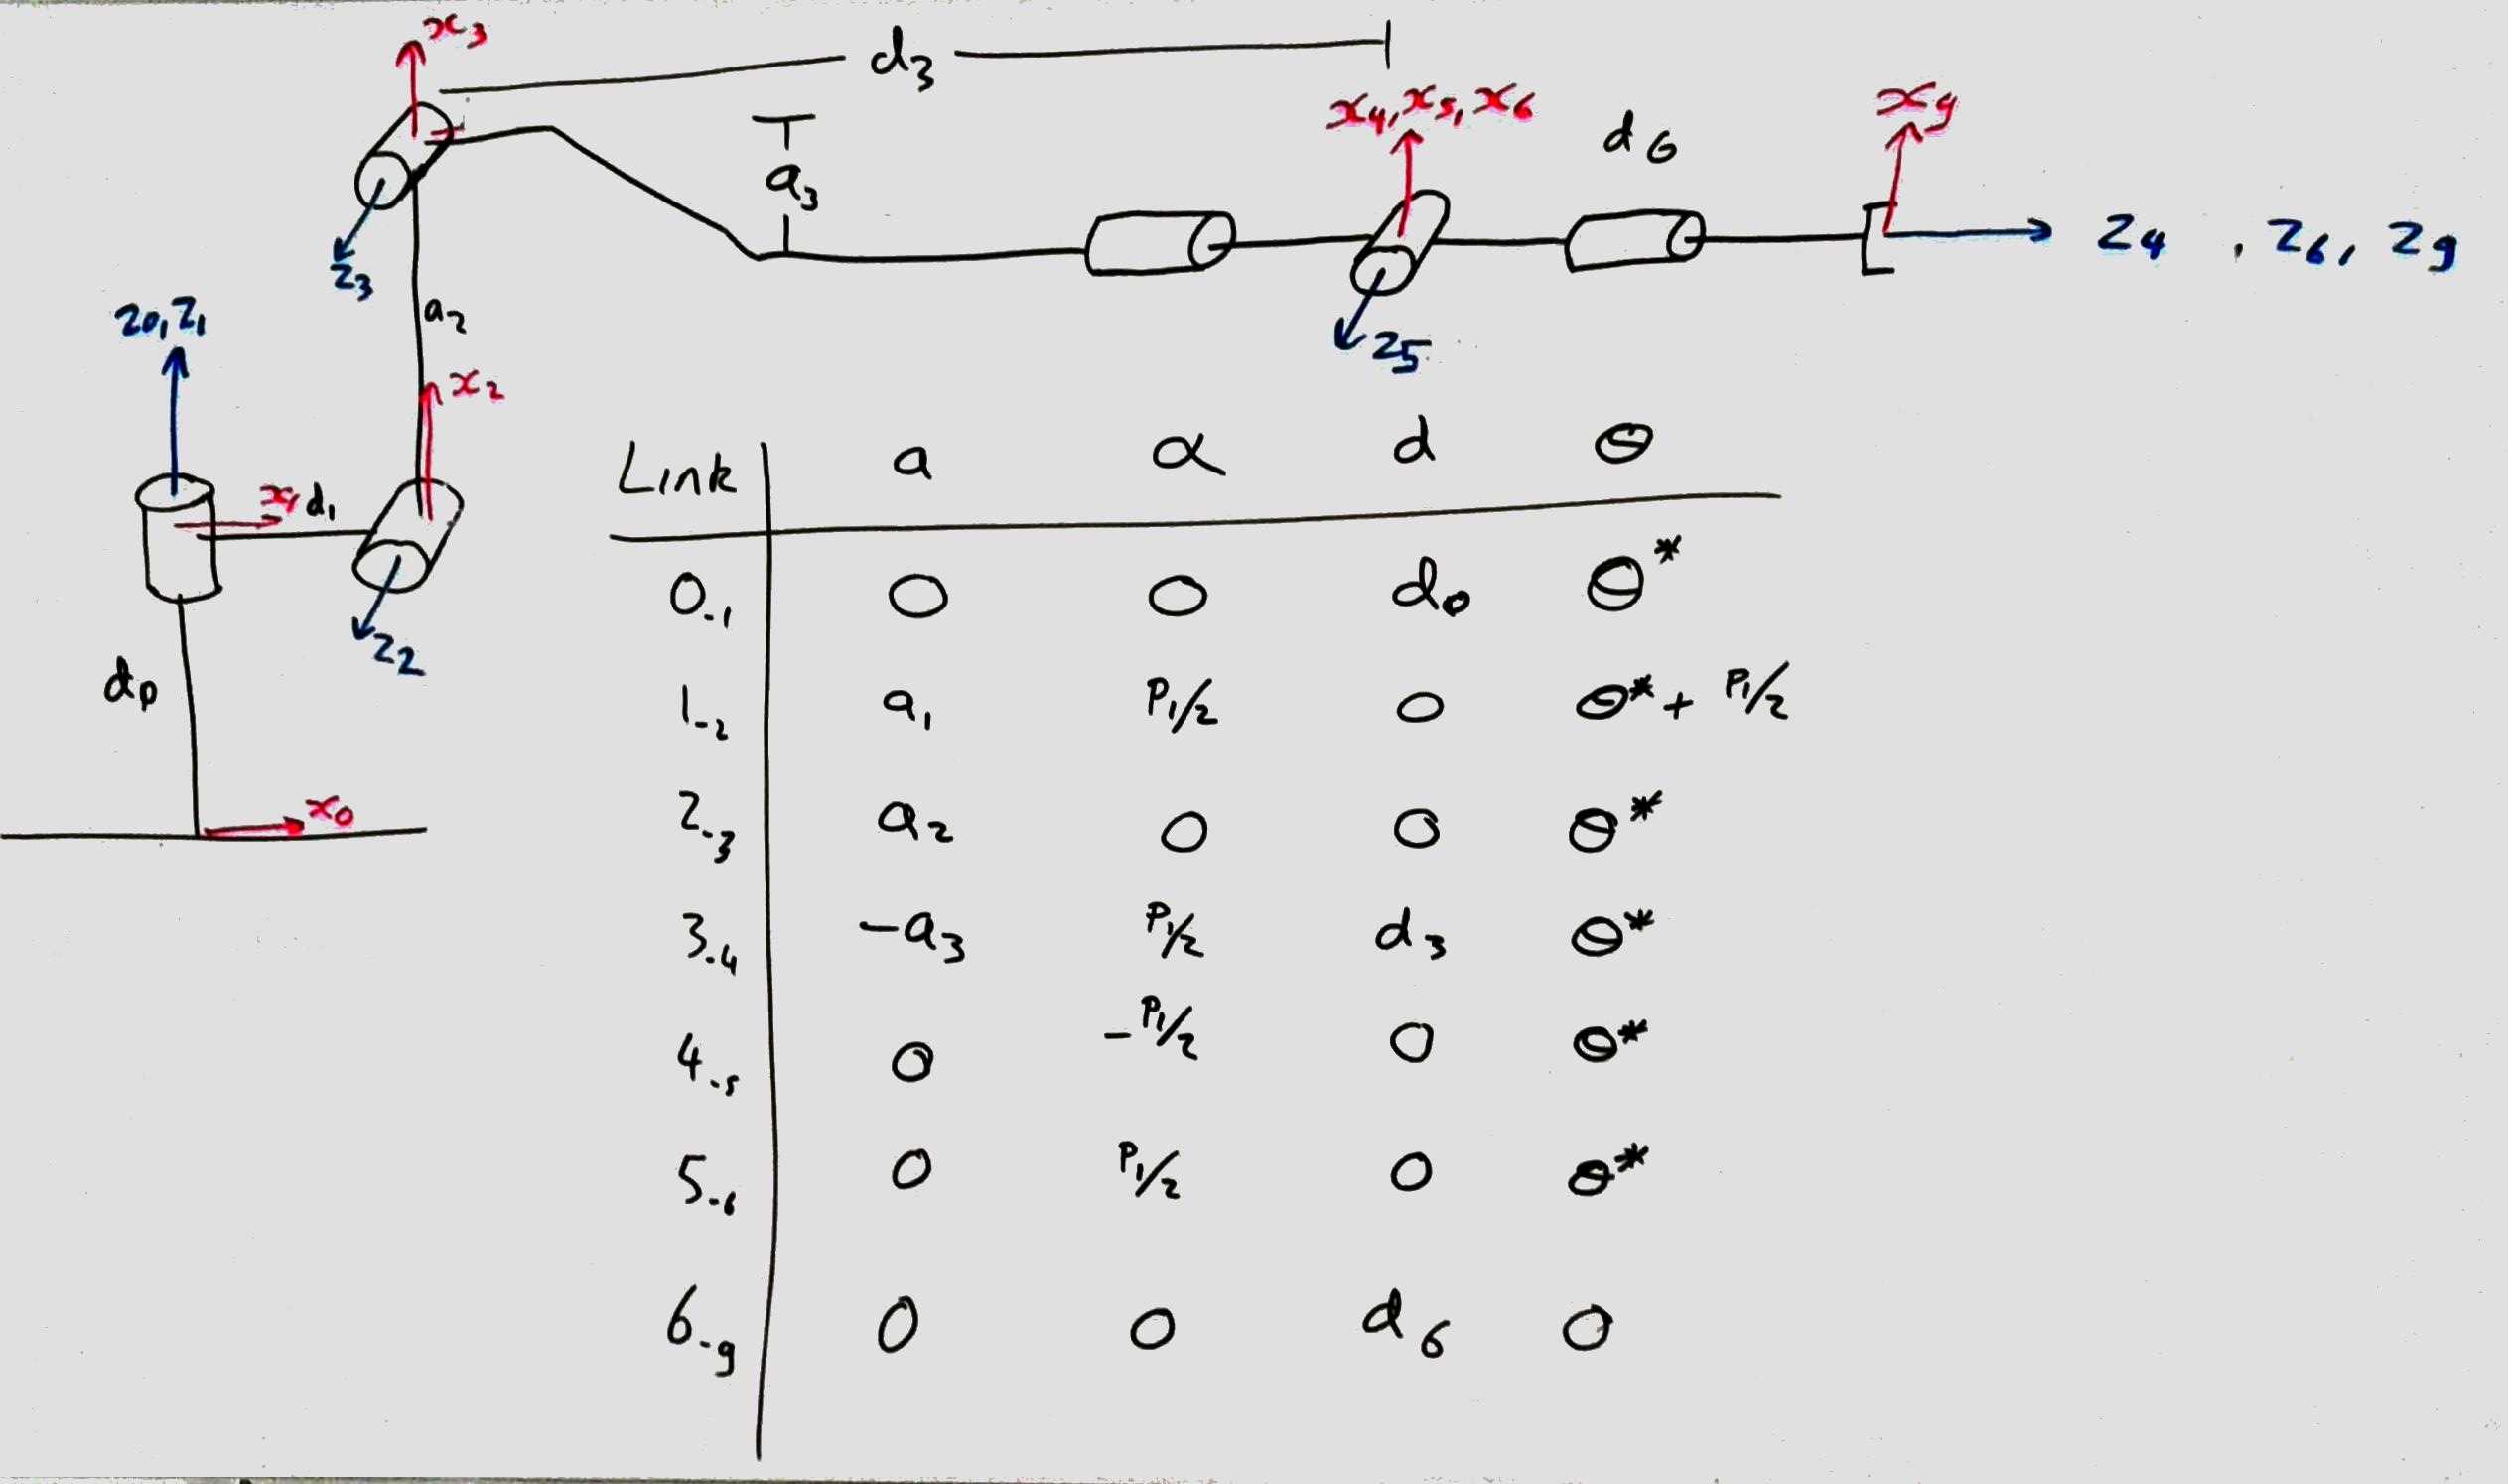 x3
d3
x4, x5, x6
xg
d6
T
a3
z4 , z6, zg
z3
z0, z1
a2
z5
x2
x1 d1
z2
d0
x0
Link a α d Θ
0-1 0 0 d0 Θ*
1-2 a1 Pi/2 0 Θ* + Pi/2
2-3 a2 0 0 Θ*
3-4 -a3 Pi/2 d3 Θ*
4-5 0 -Pi/2 0 Θ*
5-6 0 Pi/2 0 Θ*
6-g 0 0 d6 0